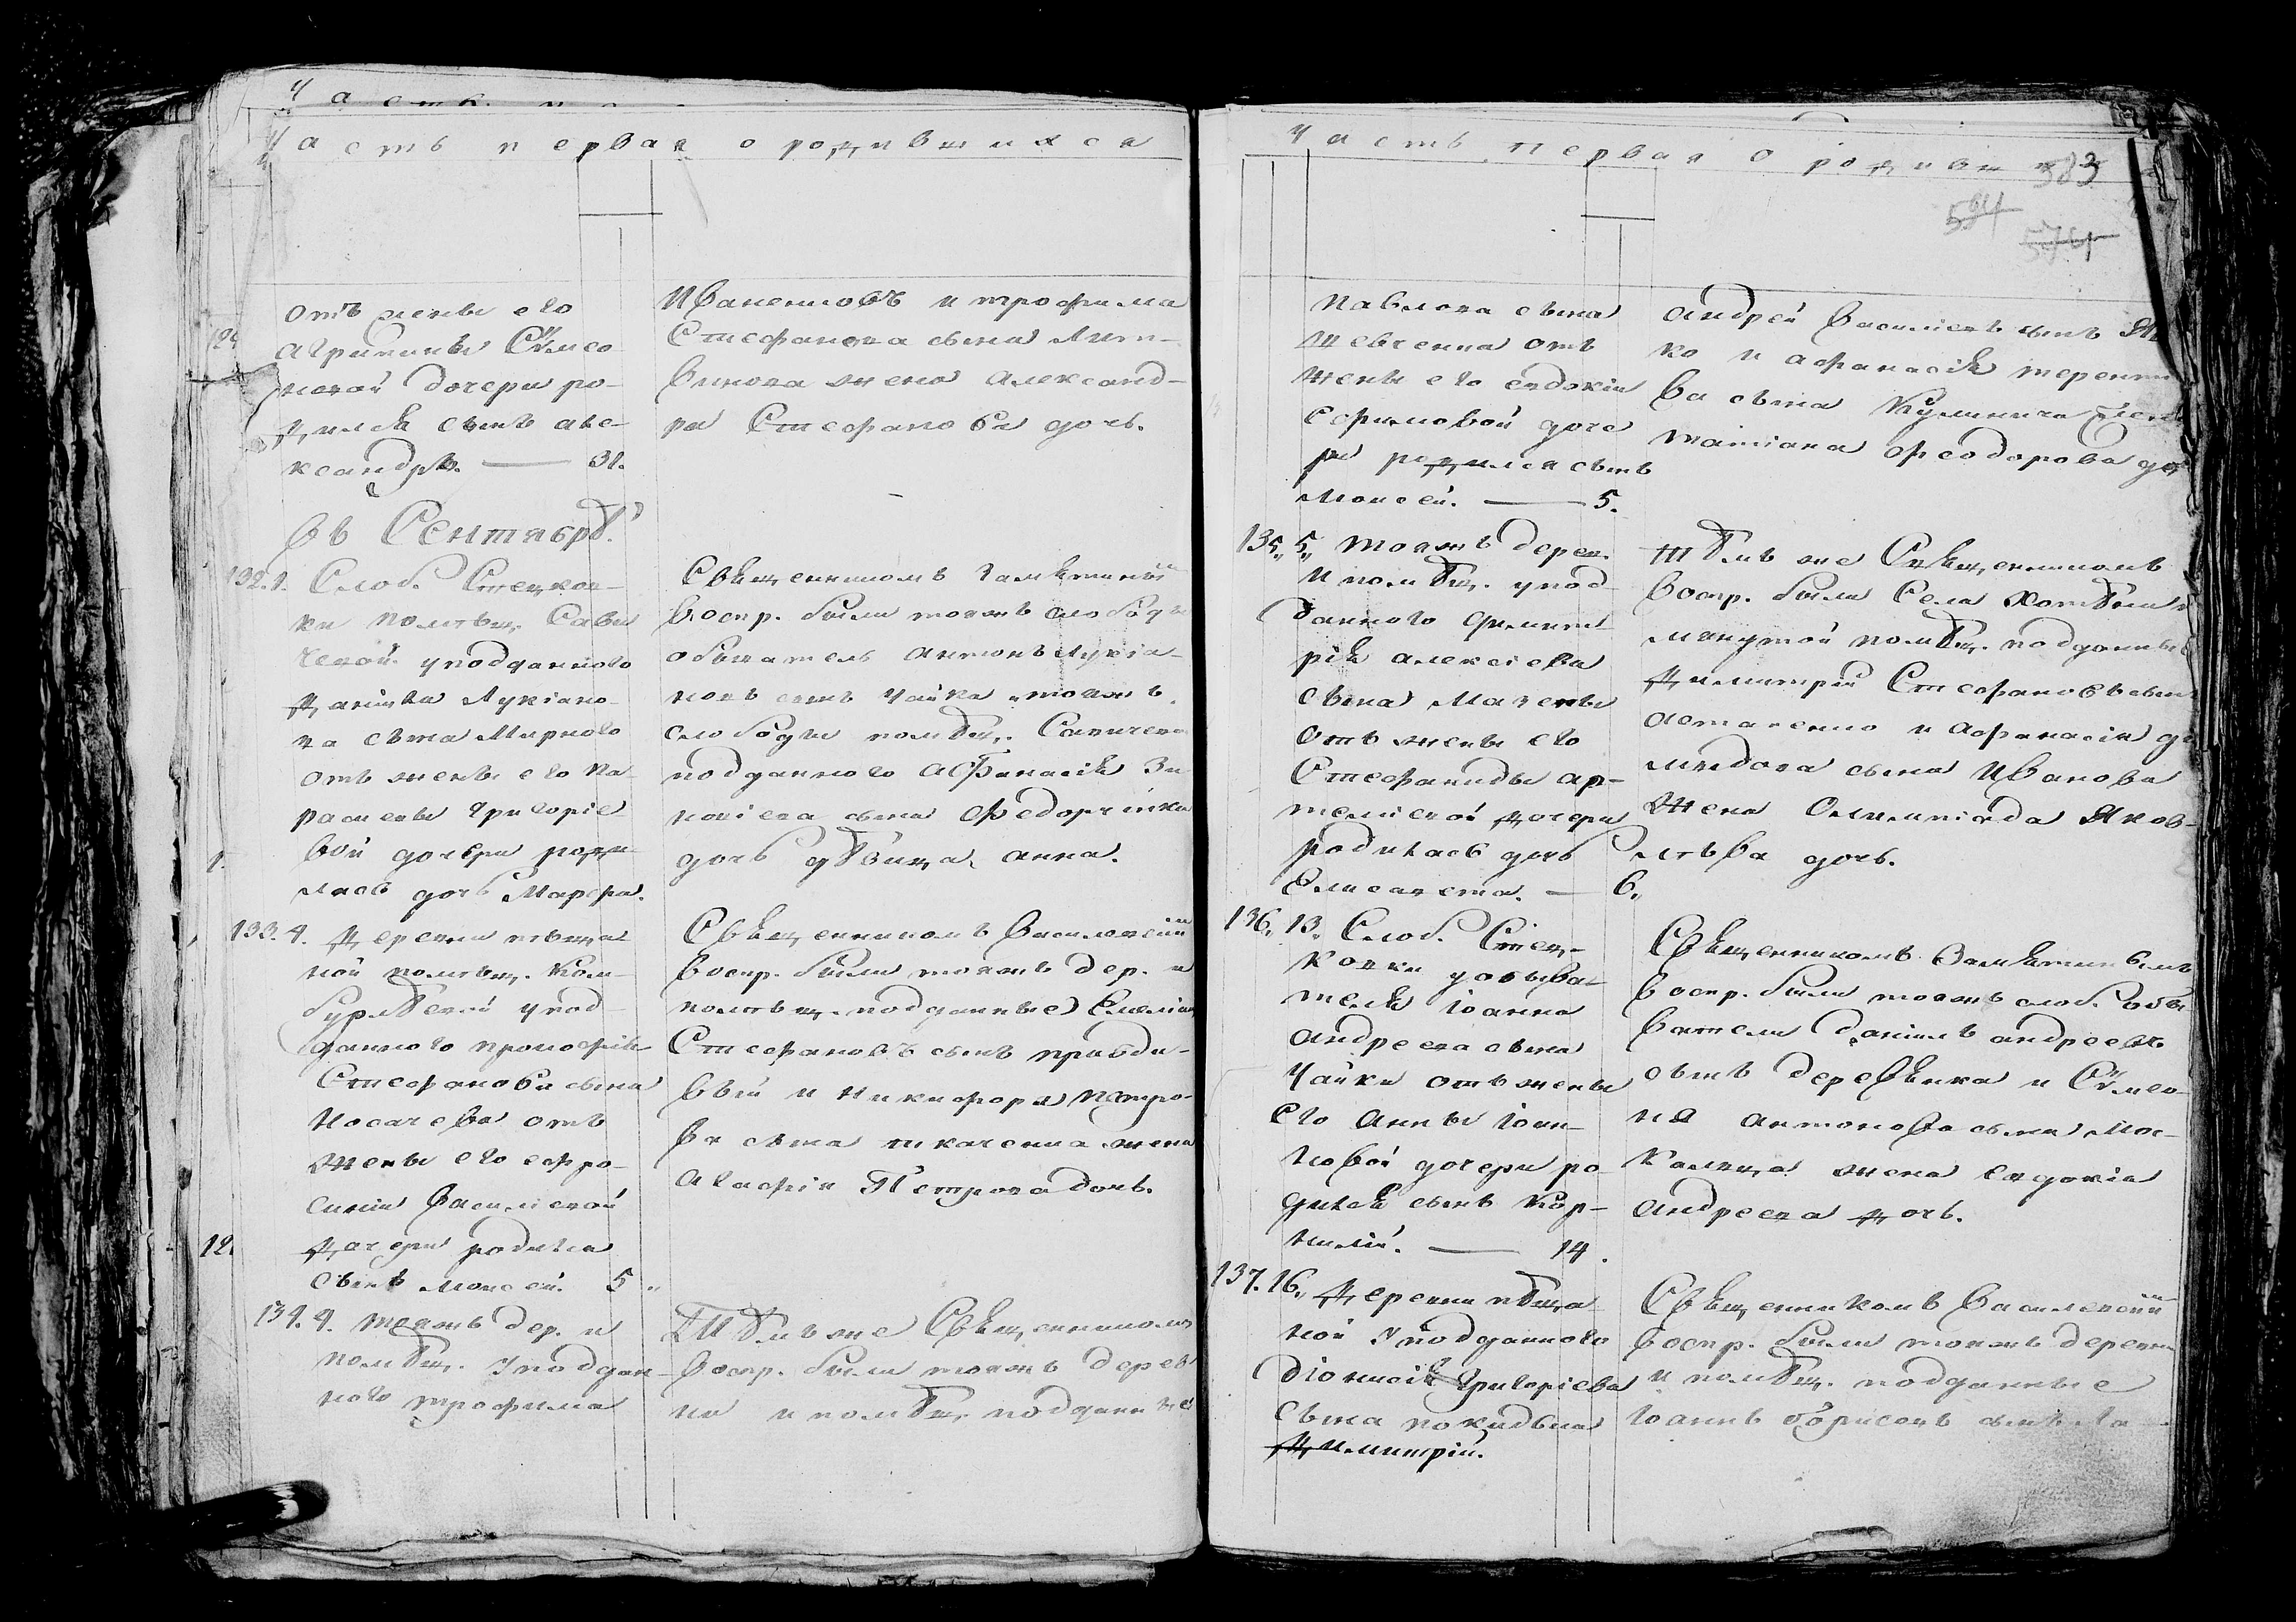 Часть первая о родившихся
отъ жены его
Агрипины Сѵмео
новой дочери ро-
дился сынъ Але-
ксандръ. — 31.
Въ Сентябрѣ.
132. 1. Слоб. Стецков-
ки помѣщ. Сави
чевой у подданного
Даніила Лукіано-
ва сына Мирного
отъ жены его Па-
раскевы Григоріе
вой дочери роди
лась дочь Марѳа.
1.
133. 4. Деревни
ной помѣщ. Ком-
бурлѣевой у под
данного прокофія
Стефанова сына
Носачева отъ
жены его евфро-
синіи Василіевой
дочери родился
сынъ Моисей. 5.
12.
134. 4. тояжъ дер. и
помѣщ. у поддан-
ного трофима
Иваненковъ и трофима
Стефанова сына Лит-
винова жена Александ-
ра Стефанова дочь.
Священникомъ
воспр. были тояжъ слобод
обыватель антонъ Лукіа-
новъ сынъ Чайка и тояжъ
слободы помѣщ. Савичевой
подданного Афанасія Зи-
новіева сына Федорченка
дочь дѣвица анна.
Священникомъ Василевскій
воспр. были тояжъ дер. и
помѣщ. подданные Емеліан
Стефановъ сынъ
и никифора петро-
ва сына ткаченка жена
Агафія Петрова дочь.
Тѣмъ же Священникомъ
воспр. были тояжъ дерев
ни и помѣщ. подданные
Часть первая о родивши
383
594
574
павлова сына
Шевченка отъ
жены его евдокіи
ефимовой доче
ри родился сынъ
Моисей. — 5.
135. 5. тояжъ дерев.
и помѣщ. у под
данного Димит
рія алексіева
сына
отъ жены его
Стефаниды ар-
теміевой дочери
родилась дочь
Елисавета. — 6.
136. 13. Слоб. Стец-
ковки у обыва-
теля Іоанна
андреева сына
Чайки отъ жены
его анны Іоан-
новой дочери ро-
дился сынъ Кор-
нилій. — 14.
137. 16. Деревни
ной у подданного
Діонисія Григоріева
сына
Димитрій.
андрей Василіевъ сынъ
ко и афанасія
ва сына Кулинича жена
татіана феодорова до
тѣмъ же Священникомъ
воспр. были Села
помѣщ. подданные
Димитрій Стефановъ сын
и афанасія
сына Иванова
жена Олимпіада Яков-
лѣва дочь.
Священникомъ
воспр. были тояжъ слоб. обы
ватели Даніилъ андреевъ
сынъ Деревянка и Сѵмео-
на антонова сына Мос-
каленка жена евдокія
андреева дочь.
Священникомъ Василевскій
воспр. были тояжъ деревни
и помѣщ. подданные
Іоаннъ борисовъ сынъ